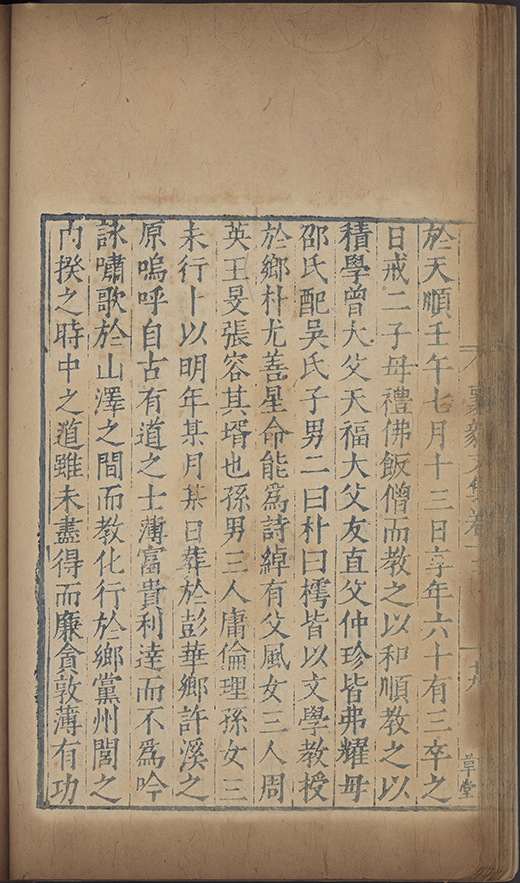 襄毅文集卷
草堂
於天順壬午七月十三日享年六十有三卒之
日戒二子毋禮佛飯僧而教之以和順教之以
積學曾大父天福大父友直父仲珍皆弗耀母
邵氏配吳氏子男二曰朴曰樗皆以文學教授
於鄉朴尤善星命能爲詩綽有父風女三人周
英王旻張容其壻也孫男三人庸倫理孫女三
未行卜以明年某月某日葬於彭華鄉許溪之
原嗚呼自古有道之士薄富貴利達而不爲吟
詠嘯歌於山澤之間而教化行於鄉黨州閭之
內揆之時中之道雖未盡得而廉貪敦薄有功